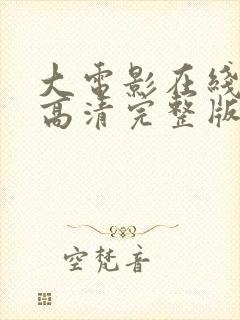 大电影在线
高清完整版
空梵音